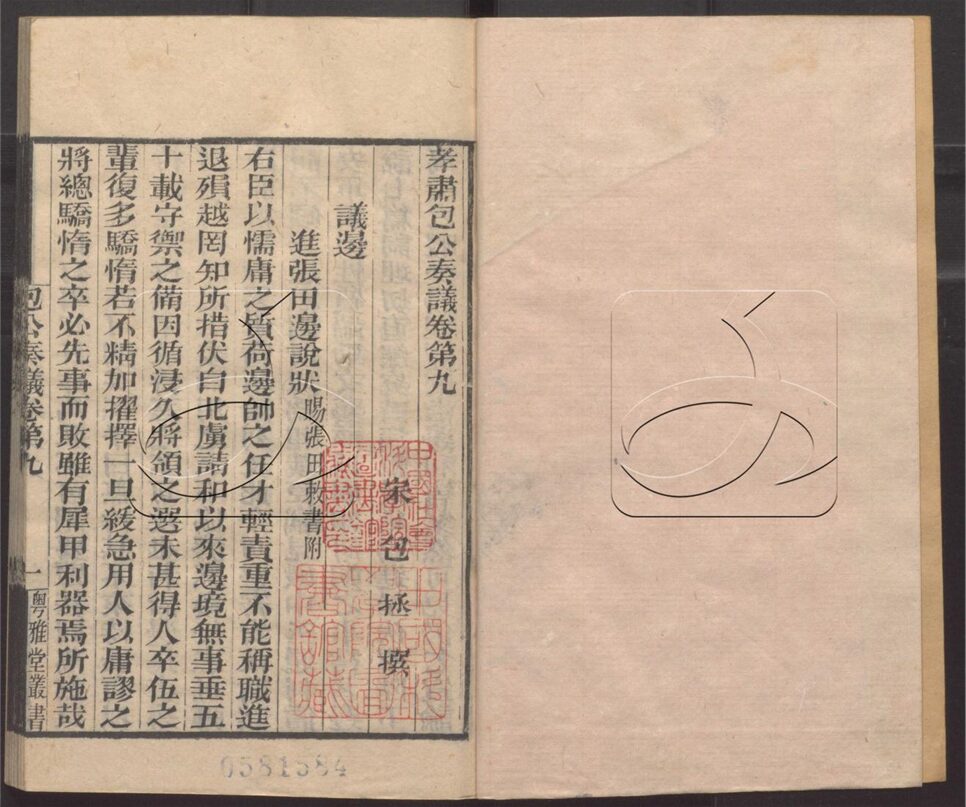 孝肅包公奏議卷第九
宋 包 拯 撰
議邊
進張田邊說狀 賜張田敕書附
右臣以懦庸之質荷邊帥之任才輕責重不能稱職進
退殞越罔知所措伏自北虜請和以來邊境無事垂五
十載守禦之備因循浸久將領之選未甚得人卒伍之
輩復多驕惰若不精加擢擇一旦緩急用人以庸謬之
將總驕惰之卒必先事而敗雖有犀甲利器焉所施哉
包公奏議卷第九 一 粵雅堂叢書
0581584